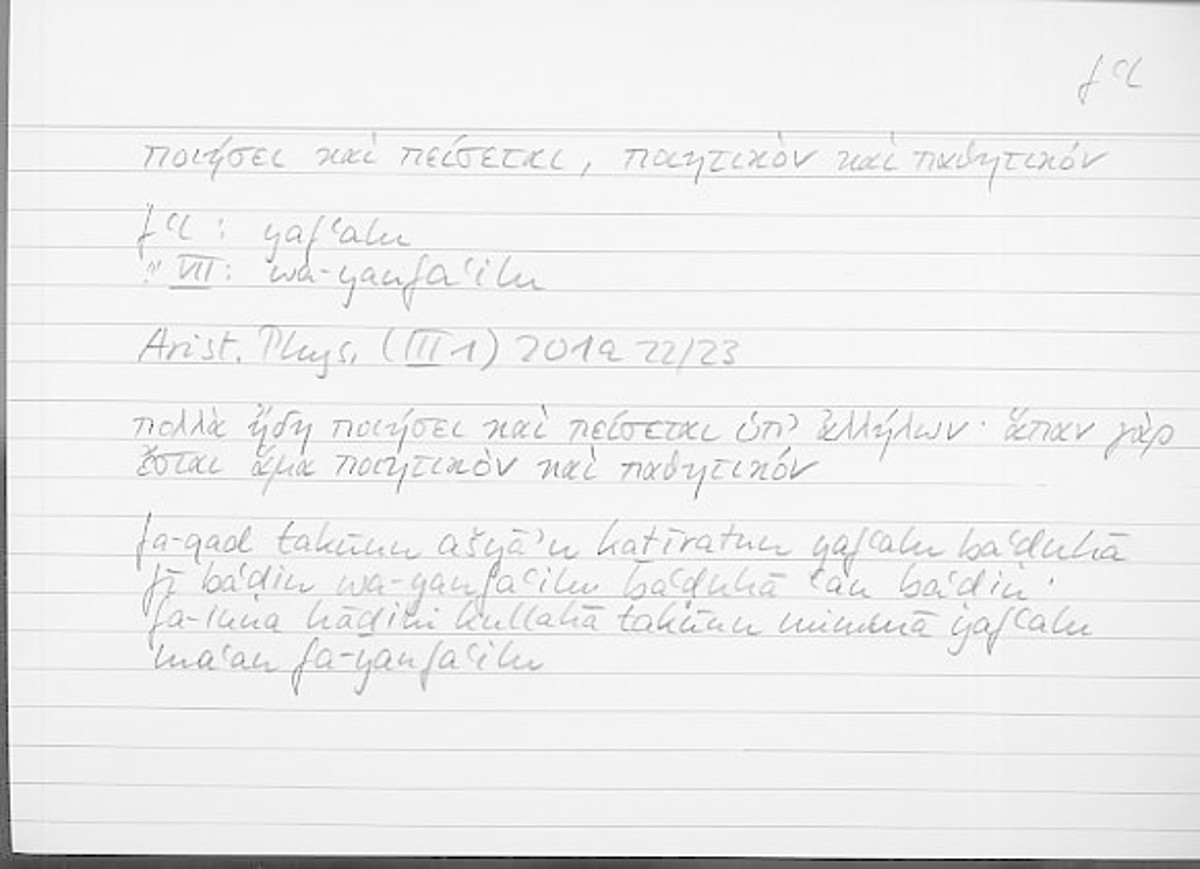 fʿl
ποιήσει καὶ πείσεται, ποιητικὸν καὶ παθητικόν
fʿl : yafʿalu
" VII : wa-yanfaʿilu
Arist. Phys. (III 1) 201a 22/23
πολλὰ ἤδη ποιήσει καὶ πείσεται ὑπ' ἀλλήλων · ἅπαν γὰρ
ἔσται ἅμα ποιητικὸν καὶ παθητικόν
fa-qad takūnu ašyāʾu kaṯīratun yafʿalu baʿḍuhā
fī baʿḍin wa-yanfaʿilu baʿḍuhā ʿan baʿḍin ·
fa-inna hāḏihi kullahā takūnu mimmā yafʿalu
maʿan fa-yanfaʿilu